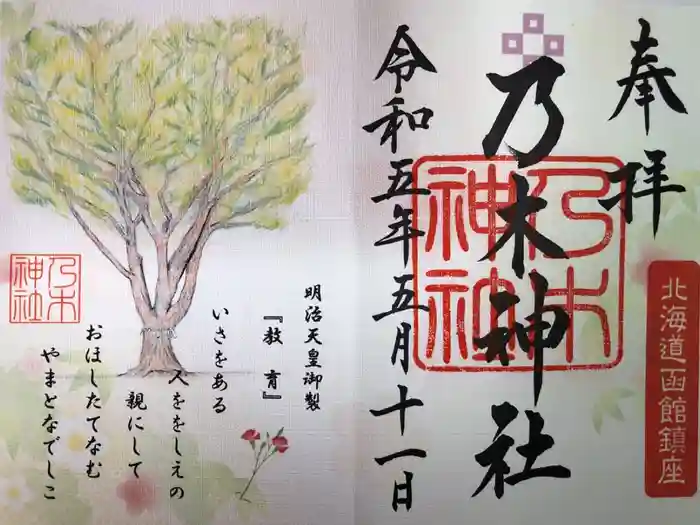 奉拝
北海道函館鎮座
乃木神社
乃木神社
令和五年五月十一日
明治天皇御製
『教育』
いさをある
人ををしえの
親にして
おほしたてなむ
やまとなでしこ
乃木神社